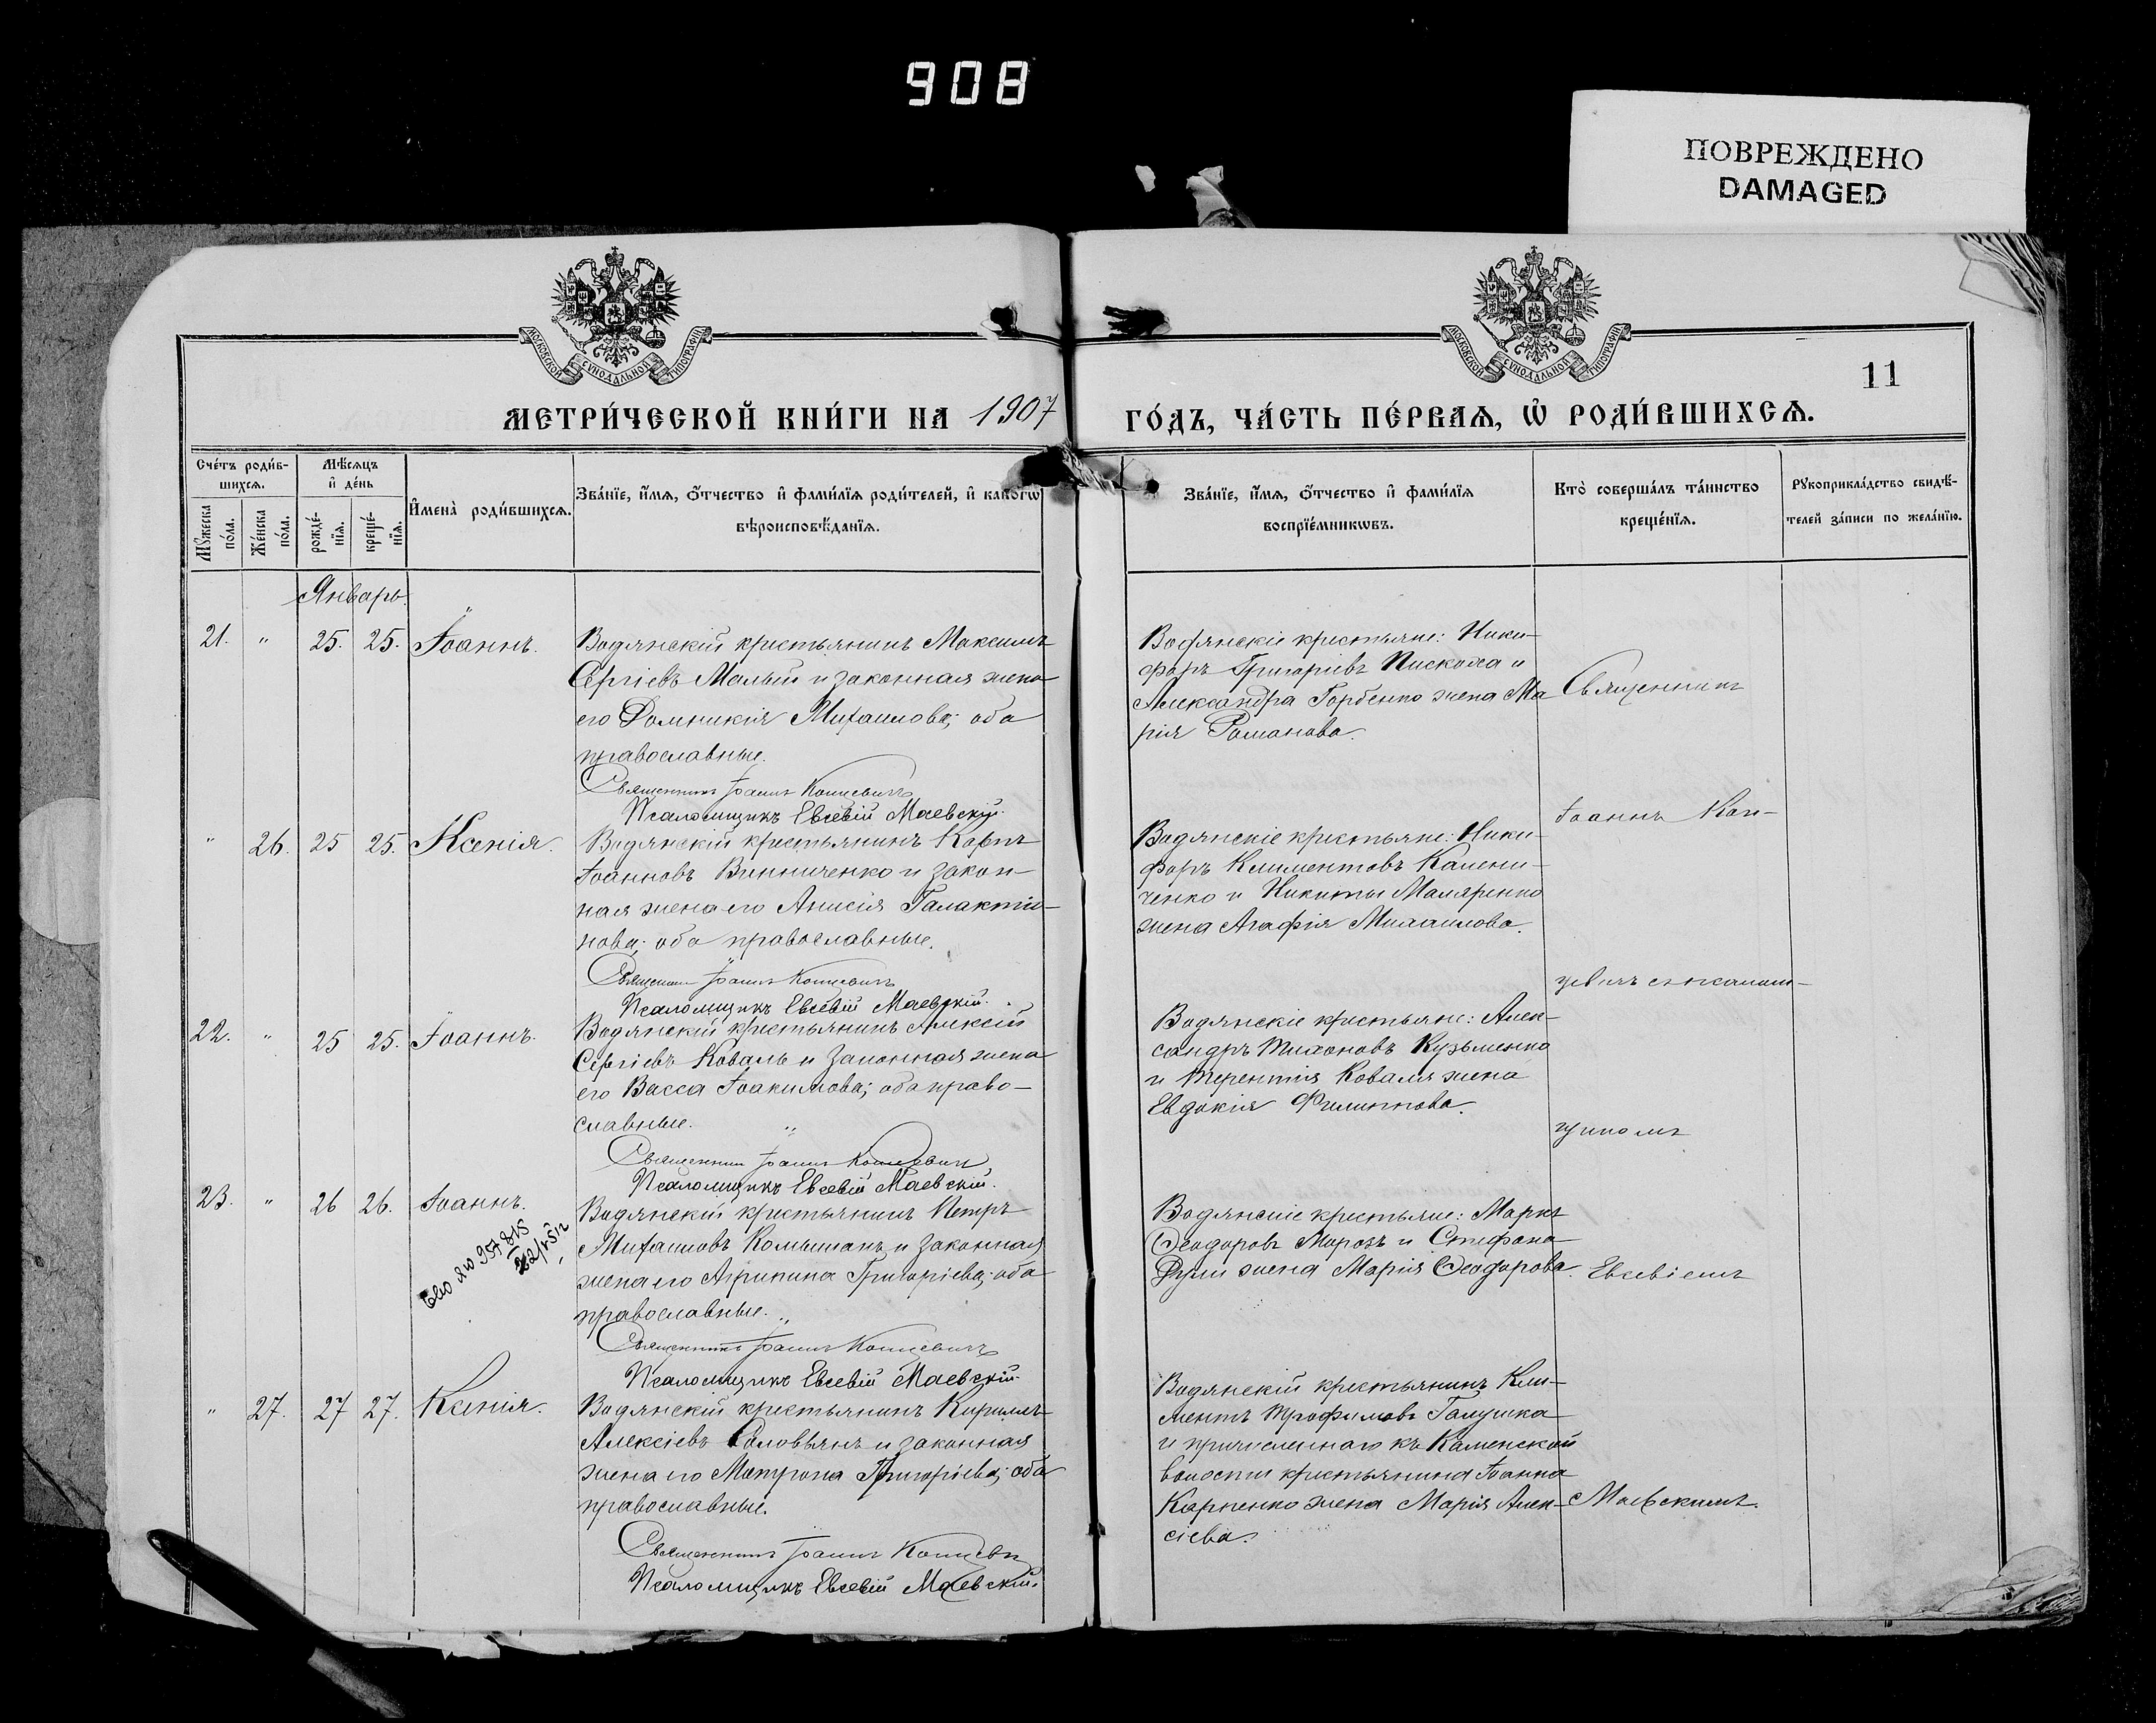 908
ПОВРЕЖДЕНО
DAMAGED
МОСКОВСКОЙ СѴНОДАЛЬНОЙ ТИПОГРАФІИ
МОСКОВСКОЙ СѴНОДАЛЬНОЙ ТИПОГРАФІИ
11
МЕТРИ́ЧЕСКОЙ КНИ́ГИ НА 1907 ГО́ДЪ, ЧА́СТЬ ПЕ́РВАѦ, Ѡ҆ РОДИ́ВШИХСѦ.
Сче́тъ роди́в-
шихсѧ.
Мꙋ́жеска по́ла.
Же́нска по́ла.
Мѣ́сѧцъ
и҆ де́нь
рожде́-
нїѧ.
креще́-
нїѧ.
И҆мена̀ роди́вшихсѧ.
Зва́нїе, и҆́мѧ, ѻ҆́тчество и҆ фами́лїѧ роди́телей, и҆ како́гѡ
вѣроисповѣ́данїѧ.
Зва́нїе, и҆́мѧ, ѻ҆́тчество и҆ фами́лїѧ
воспрїе́мникѡвъ.
Кто̀ соверша́лъ та́инство
креще́нїѧ.
Рꙋкоприкла́дство свидѣ́-
телей за́писи по жела́нїю.
Январь.
21. " 25. 25. Іоаннъ.
Водянскій крестьянинъ Максимъ
Сергіевъ Малый и законная жена
его Домникія Михаилова; оба
православные.
Священникъ Іоаннъ Концевичъ
Псаломщикъ Евсевій Маевскій.
Водянскіе крестьяне: Ники-
форъ Григоріевъ и
Александра Горбенко жена Ма
рія Романова.
" 26. 25 25. Ксенія.
Водянскій крестьянинъ Карпъ
Іоанновъ Винниченко и закон-
ная жена его Анисія Галактіо-
нова; оба православные.
Священникъ Іоаннъ Концевичъ
Псаломщикъ Евсевій Маевскій.
Водянскіе крестьяне: Ники-
форъ Климентовъ Калени-
ченко и Никиты Маляренко
жена Агафія Михаилова.
22. " 25 25. Іоаннъ.
Водянскій крестьянинъ Алексій
Сергіевъ Коваль и законная жена
его Васса Іоакимова; оба право-
славные.
Священникъ Іоаннъ Концевичъ
Псаломщикъ Евсевій Маевскій.
Водянскіе крестьяне: Алек-
сандръ Тихоновъ Кузьменко
и Терентія Коваля жена
Евдокія Филиппова.
23. " 26 26. Іоаннъ.
Водянскій крестьянинъ Петръ
Михаиловъ и законная
жена его Агрипина Григоріева; оба
православные.
Священникъ Іоаннъ Концевичъ
Псаломщикъ Евсевій Маевскій.
Водянскіе крестьяне: Маркъ
Ѳеодоровъ Морозъ и Стефана
жена Марія Ѳеодорова.
" 27. 27 27. Ксенія.
Водянскій крестьянинъ Кириллъ
Алексіевъ Соловьянъ и законная
жена его Матрона Григоріева; оба
православные.
Священникъ Іоаннъ Концевичъ
Псаломщикъ Евсевій Маевскій.
Водянскій крестьянинъ Кли-
ментъ Трофимовъ Галушка
и причисленнаго къ Каменской
волости крестьянина Іоанна
Карпенко жена Марія Алек-
сіева.
Священникъ
Іоаннъ Кон-
цевичъ съ псалом-
щикомъ
Евсевіемъ
Маевскимъ.